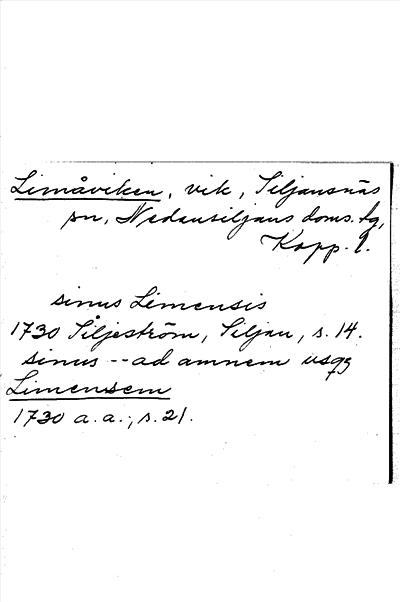 Limåviken, vik, Siljansnäs
sn, Nedansiljans doms. tg,
Kopp. l.
sinus Limensis
1730 Siljeström, Siljan, s. 14.
sinus -- ad amnem usqz
Limensem
1730 a. a., s. 21.